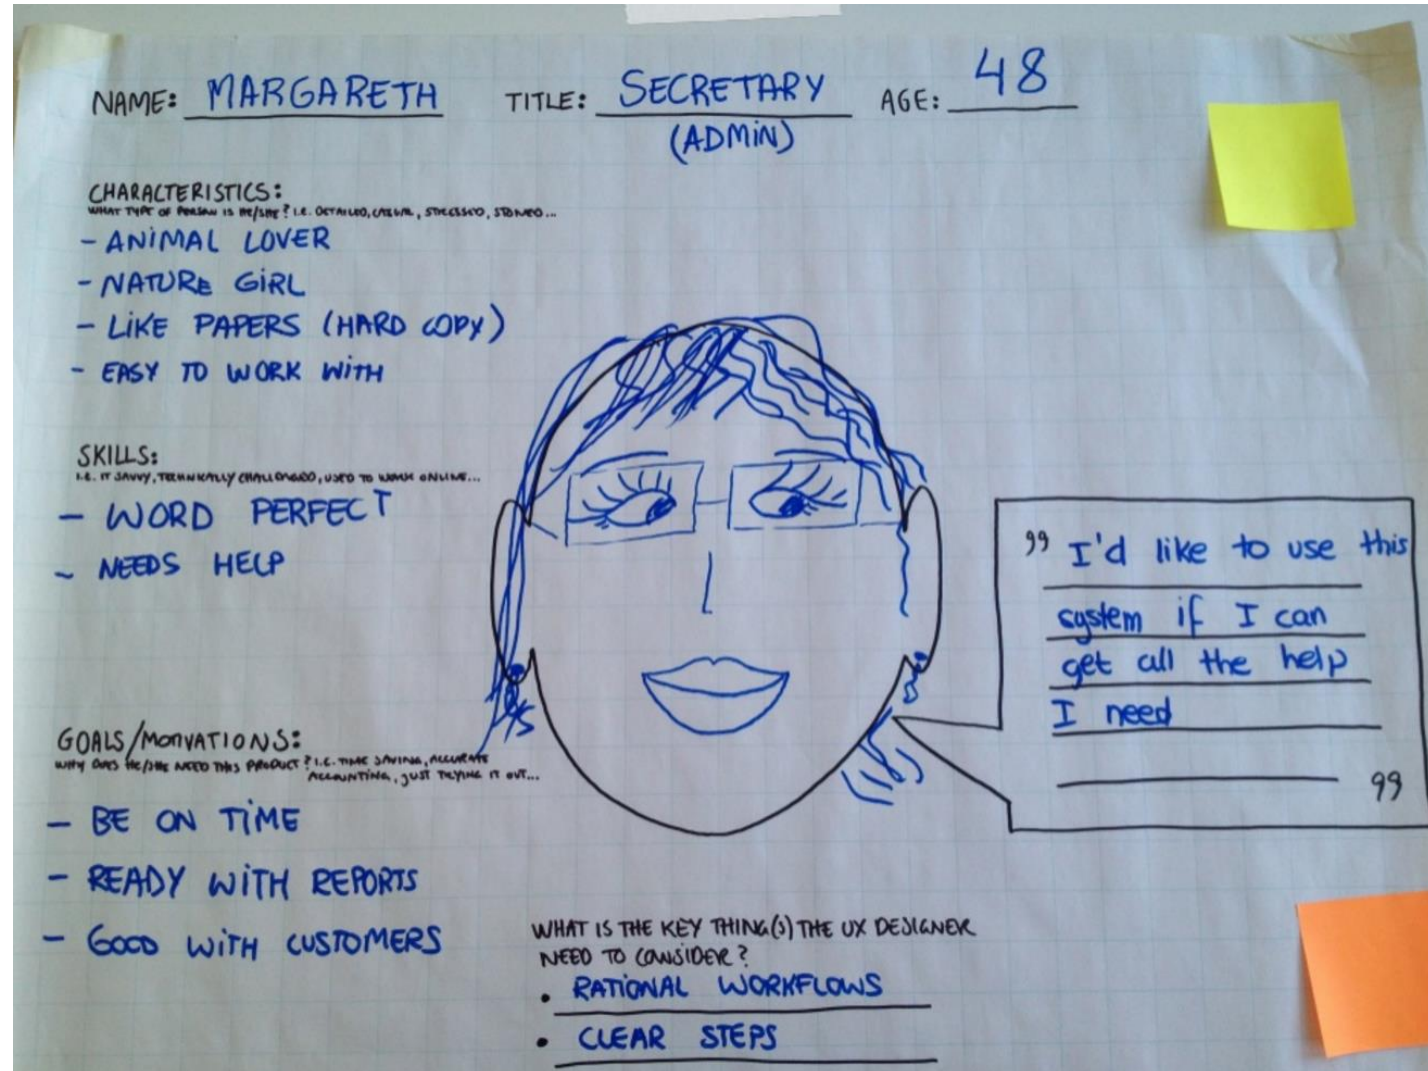 NAME: MARGARETH TITLE: SECRETARY AGE: 48
(ADMIN)
CHARACTERISTICS:
WHAT TYPE OF PERSON IS HE/SHE? I.E. DETAILED, CASUAL, STRESSED, STONED...
- ANIMAL LOVER
- NATURE GIRL
- LIKE PAPERS (HARD COPY)
- EASY TO WORK WITH
SKILLS:
I.E. IT SAVVY, TECHNICALLY CHALLENGED, USED TO WORK ONLINE...
- WORD PERFECT
- NEEDS HELP
GOALS/MOTIVATIONS:
WHY DOES HE/SHE NEED THIS PRODUCT? I.E. TIME SAVING, ACCURATE
ACCOUNTING, JUST TRYING IT OUT...
- BE ON TIME
- READY WITH REPORTS
- GOOD WITH CUSTOMERS
" I'd like to use this
system if I can
get all the help
I need
"
WHAT IS THE KEY THING(S) THE UX DESIGNER
NEED TO CONSIDER?
• RATIONAL WORKFLOWS
• CLEAR STEPS